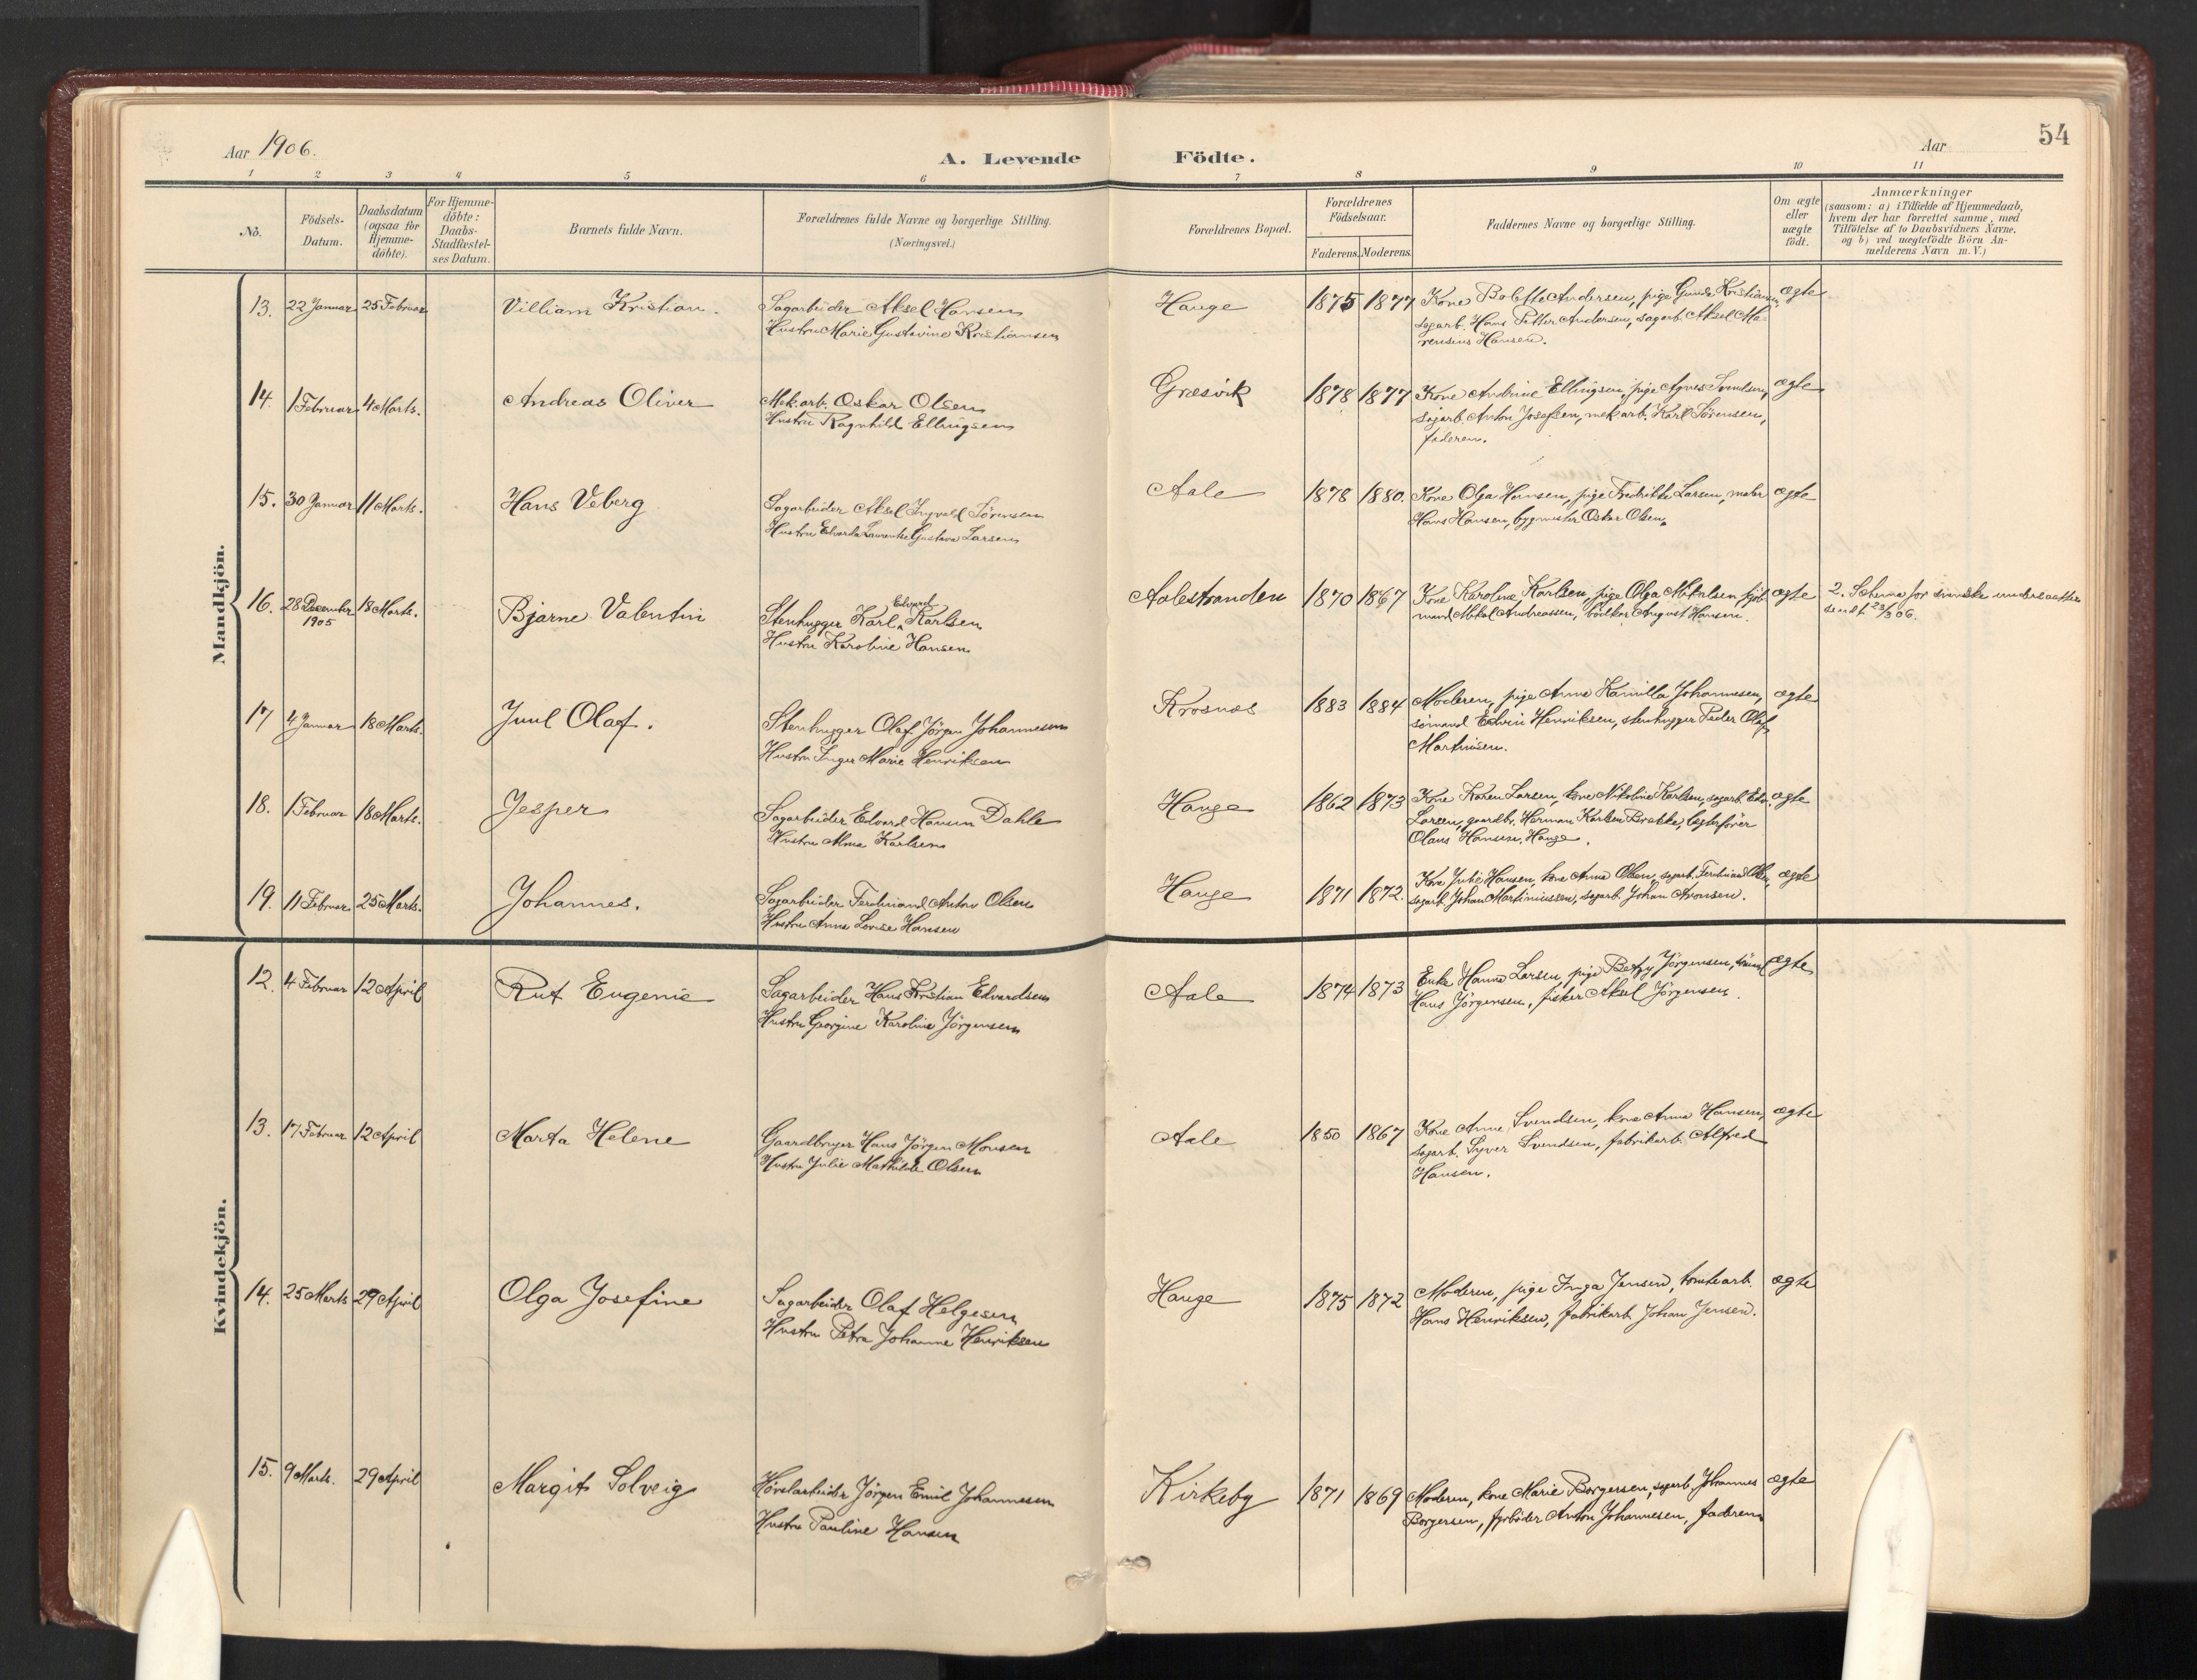 54
Aar 1906.
A. Levende Födte.
Aar
1 2 3 4 5 6 7 8 9 10 11
No.
Födsels-
Datum.
Daabsdatum
(ogsaa for
Hjemme-
döbte).
For Hjemme-
döbte:
Daabs-
Stadfæstel-
ses Datum.
Barnets fulde Navn.
Forældrenes fulde Navne og borgerlige Stilling.
(Næringsvei.)
Forældrenes Bopæl.
Forældrenes
Födselsaar.
Faderens. Moderens.
Faddernes Navne og borgerlige Stilling.
Om ægte
eller
uægte
født.
Anmærkninger
(saasom: a) i Tilfælde af Hjemmedaab,
hvem der har forrettet samme, med
Tilföielse af to Daabsvidners Navne.
og b) ved uægtefödte Börn An-
melderens Navn m.V.)
Mandkjön.
13. 22 Januar 25 Februar Villiam Kristian. Sagarbeider Aksel Hansen
Hustru Marie Gustavine Kristiansen
Hauge 1875 1877 Kone Bolette Andersen, pige Gunda Kristiansen, ægte
sagarb. Hans Petter Andersen, sagarb. Aksel Ma-
rensius Hansen.
14. 1 Februar 4 Marts. Andreas Oliver Mek. arb. Oskar Olsen
Hustru Ragnhild Ellingsen
Græsvik 1878 1877 Kone Andrine Ellingsen, pige Agnes Svendsen, ægte
sagarb. Anton Josefsen, mek arb. Karl Sörensen,
faderen.
15. 30 Januar 11 Marts. Hans Veberg Sagarbeider Aksel Ingvald Sörensen
Hustru Edvarda Laurentse Gustava Larsen
Aale 1878 1880. Kone Olga Hansen, pige Fredrikke Larsen, maler ægte
Hans Hansen, bygmester Oskar Olsen.
16. 28 December 1905 18 Marts. Bjarne Valentin Stenhugger Karl Edvard Karlsen
Hustru Karoline Hansen
Aalestranden 1870 1867 Kone Karoline Karlsen, pige Olga Mikalsen kjöb- ægte
mand Mikal Andreassen, bödker August Hansen.
2. Schema for svenske undersaatter
sendt 23/3 06.
17 4 Januar 18 Marts. Juul Olaf. Stenhugger Olaf Jörgen Johannesen
Hustru Inger Marie Henriksen
Krosnæs 1883 1884 Moderen, pige Anna Kamilla Johannesen, ægte
sömand Edvin Henriksen, stenhugger Peder Olaf
Martinsen.
18. 1 Februar 18 Marts. Jesper Sagarbeider Edvard Hansen Dahle
Hustru Alma Karlsen
Hauge 1862 1873 Kone Karen Larsen, kone Nikoline Karlsen, sagarb. Edv. ægte
Larsen, gaardbr. Herman Karlsen Brække, lægterförer
Olaus Hansen, Hauge.
19. 11 Februar 25 Marts. Johannes. Sagarbeider Ferdinand Anton Olsen
Hustru Anna Lovise Hansen
Hauge 1871 1872. Kone Julie Hansen, kone Anna Olsen, sagarb. Ferdinand Olsen, ægte
sagarb. Johan Martiniussen, sagarb. Johan Aronsen.
Kvindekjön.
12. 4 Februar 12 April Rut Eugenie Sagarbeider Hans Kristian Edvardsen
Hustru Georgine Karoline Jörgensen
Aale 1874 1873 Enke Hanna Larsen, pige Betzy Jörgensen, ægte
Hans Jörgensen, fisker Aksel Jörgensen.
13. 17 Februar 12 April Marta Helene Gaardbruger Hans Jörgen Monsen
Hustru Julie Mathilde Olsen
Aale 1850 1867 Kone Anne Svendsen, kone Anna Hansen, ægte
sagarb. Syver Svendsen, fabrikarb. Alfred
Hansen.
14. 25 Marts 29 April Olga Josefine Sagarbeider Olaf Helgesen
Hustru Petra Johanne Henriksen
Hauge 1875 1872 Moderen, pige Inga Jensen, tomtearb. ægte
Hans Henriksen, fabrikarb. Johan Jensen.
15. 9 Marts. 29 April Margit Solveig Hövelarbeider Jörgen Emil Johannesen
Hustru Pauline Hansen
Kirkeby 1871 1869 Moderen, kone Marie Borgersen, sagarb. Johannes ægte
Borgersen, fyrböder Anton Johannesen, faderen